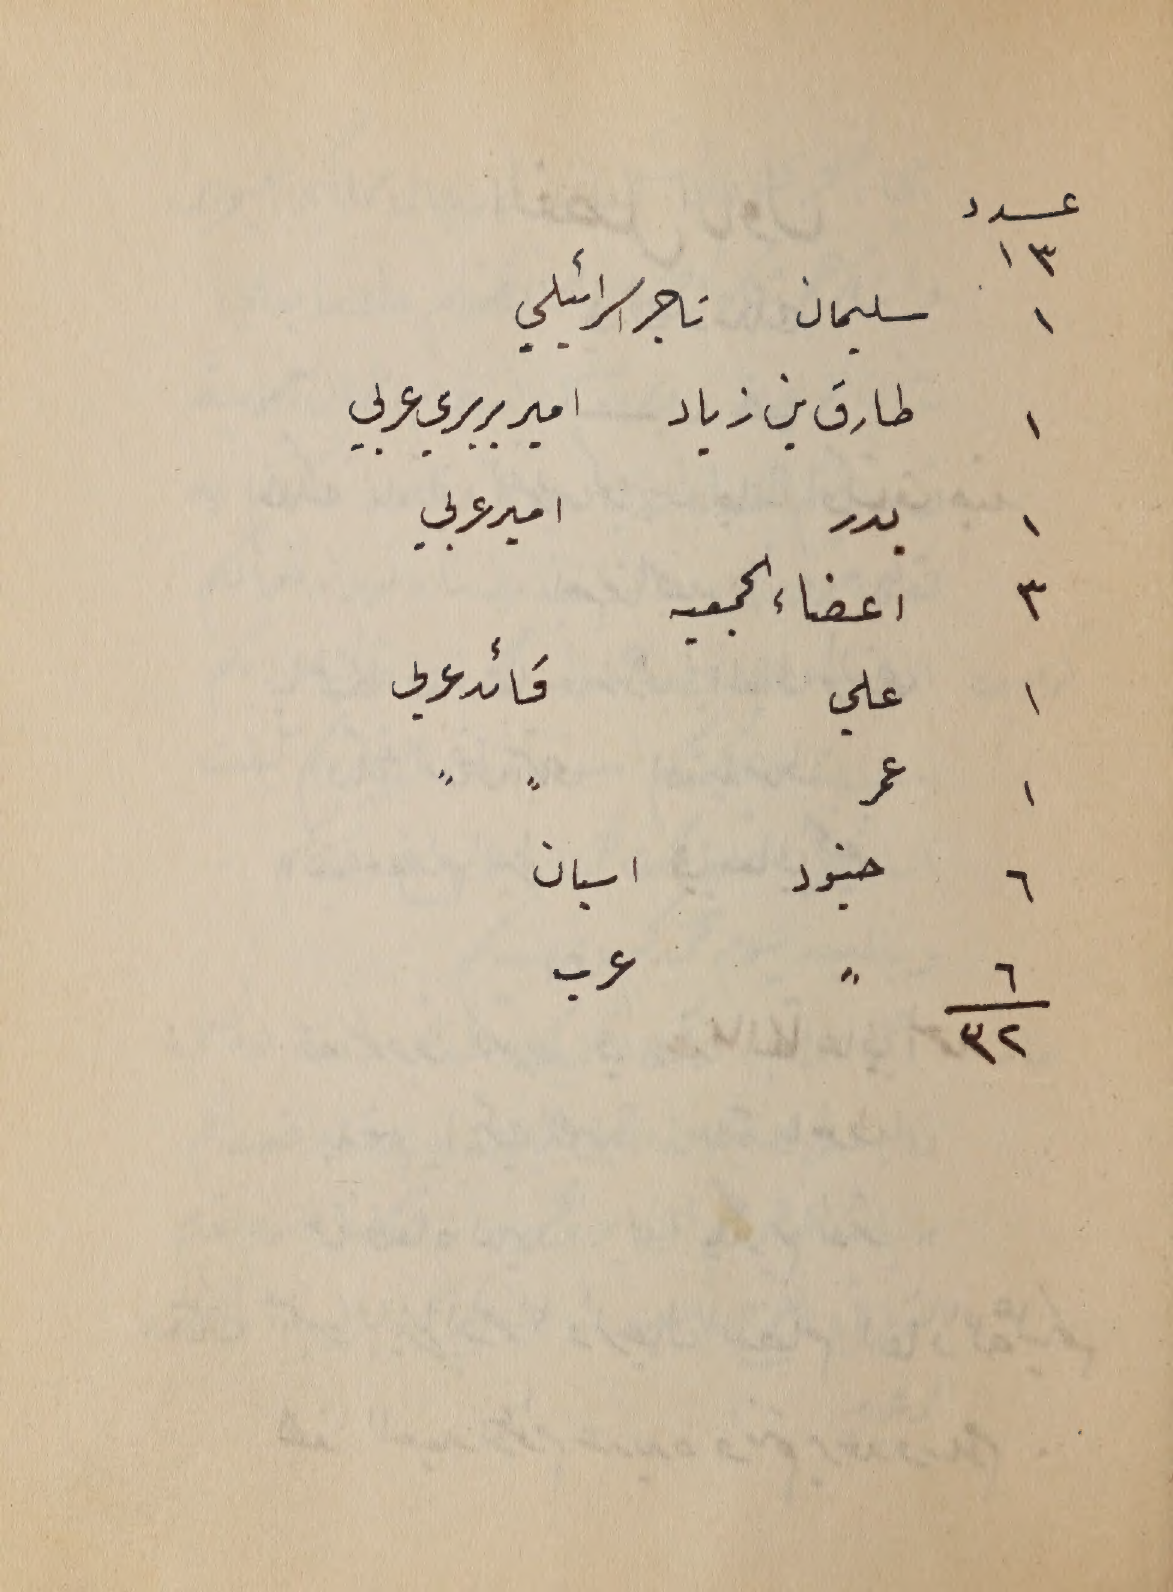 عدد
١٣
١ سليمان تاجر اسرائيلي
١ طارق بن زياد امير بربري عربي
١ بدر امير عربي
٣ اعضاء الجمعيه
١ علي قائد عربي
١ عمر " "
٦ جنود اسبان
٦ " عرب
٣٢